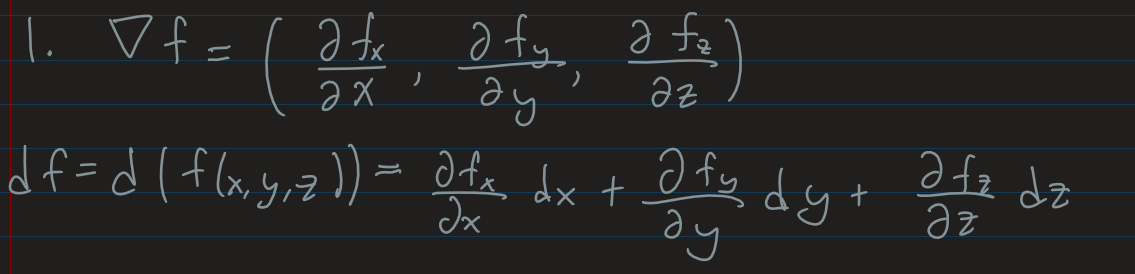 1. ∇f = ( ∂f_x/∂x , ∂f_y/∂y , ∂f_z/∂z )
df = d(f(x,y,z)) = ∂f_x/∂x dx + ∂f_y/∂y dy + ∂f_z/∂z dz